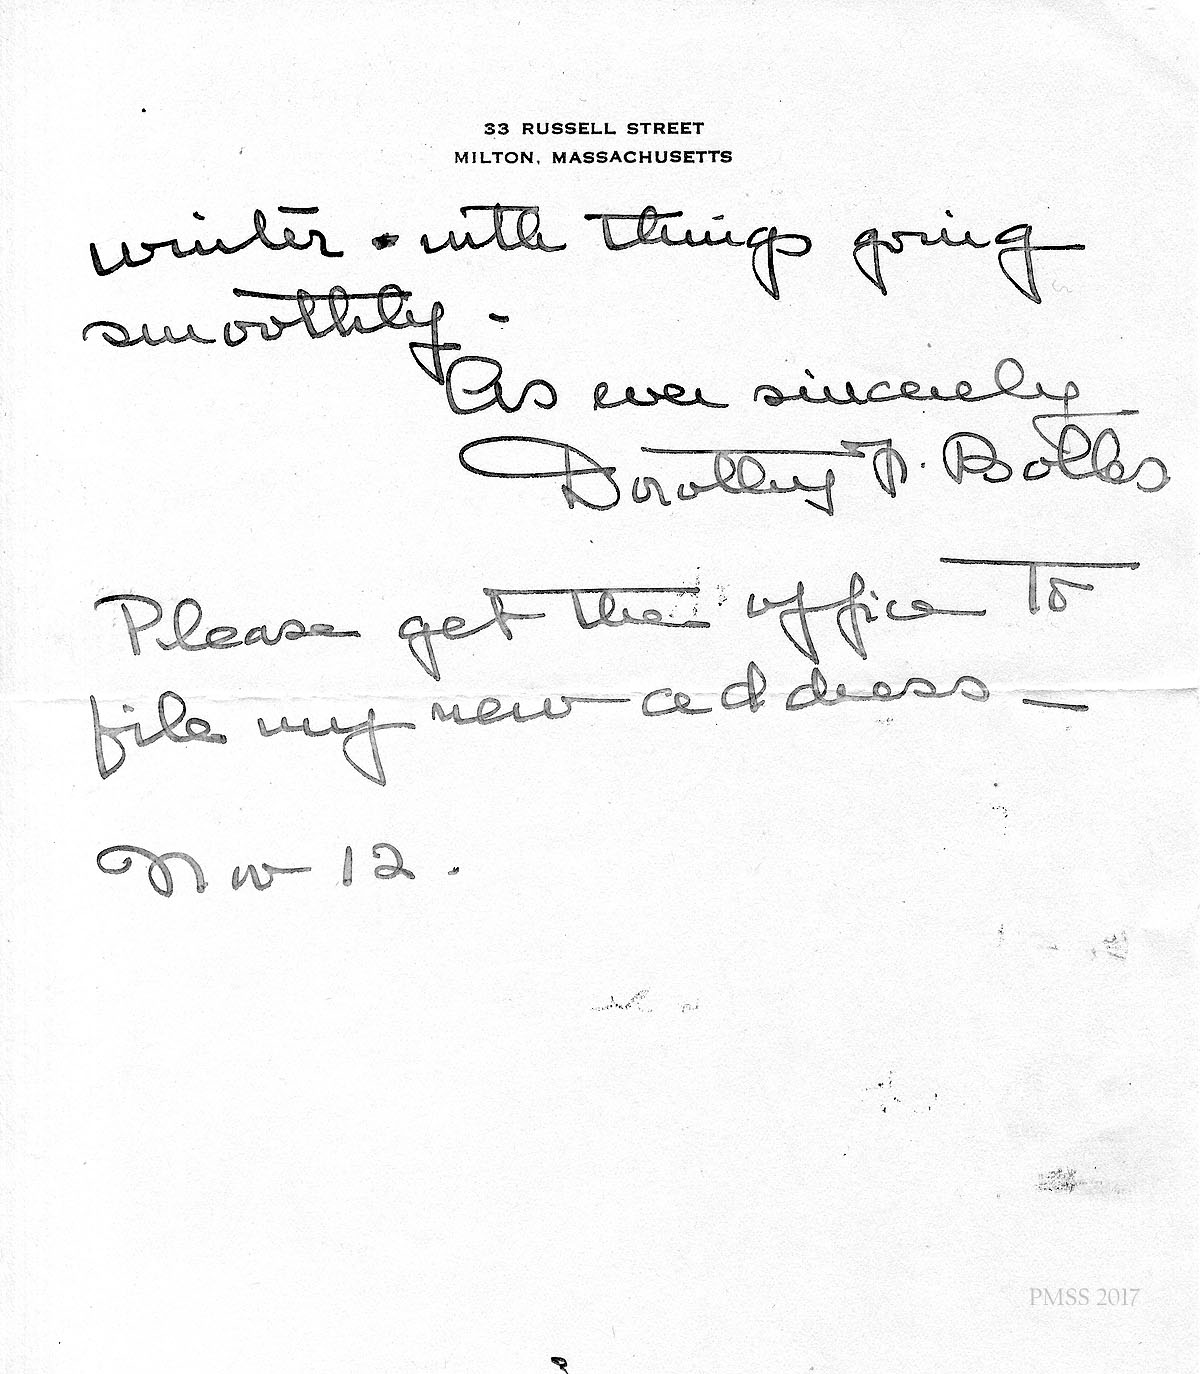 33 RUSSELL STREET
MILTON, MASSACHUSETTS
winter with things going
smoothly -
As ever sincerely
Dorothy F. Bolles
Please get the office to
file my new address —
Nov 12.
PMSS 2017